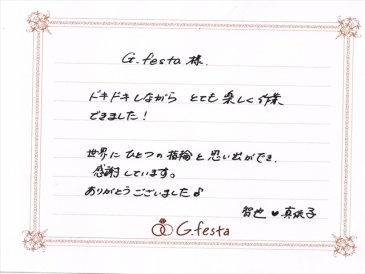 G.festa 様.
ドキドキしながら とても楽しく作業
できました!
世界にひとつの指輪と思い出ができ、
感謝しています。
ありがとうございました♪
智也 ♥ 真依子
G.festa